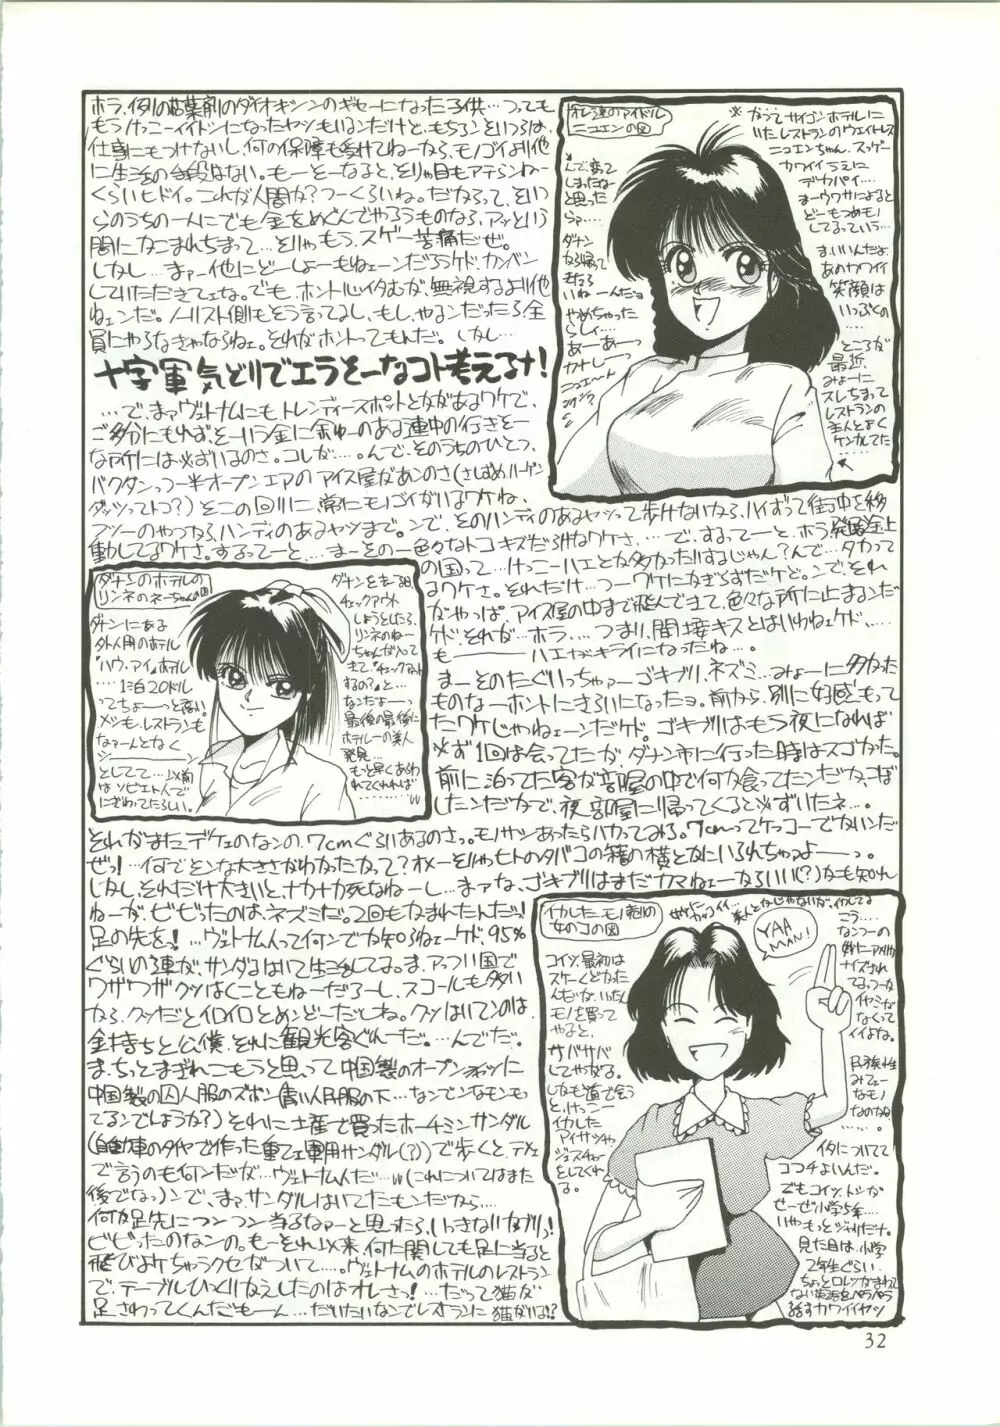 もうけっこーイイトシになったヤツもいるんだけど、もちろんそういうるは、
くらいヒドイ。これが人間か?つーくらいね。だからって、そいつ
らのうちの一人にでも金をめぐんでやろうものなら、アッという
間にかこまれちまって…そりゃもう、スゲー苦痛だぜ。
しかし…まァー他にどーしよーもねェーんだろうケド、カンベン
していただきてェな。でも、ホントに心イタむが、無視するより他
ねェンだ。ノーリスト側もそう言ってるし、もし、やるンだったら全
員にやらなきゃならねェ。それがホントってもんだ。しかし…
十字軍気どりでエラそーなコト考えるナ!
…で、まァヴェトナムにもトレンディースポットとかがあるワケで、
ご多分にもれず、そーいう金に余ゆーのある連中の行きそー
な所には必ずいるのさ。コレが…。んで、そのうちのひとつ、
バクダンっつー半オープンエアのアイス屋があんのさ(さしずめハーゲン
ダッツってトコ?)そこの回りに、常にモノゴイがいるワケね。
フツーのやつからハンディのあるヤツまで。ンで、そのハンディのあるヤツって歩けないから、ハイずって街中を移
動してるワケさ。するってーと、…まーその一色々なトコキズだらけなワケさ、…で、するってーと、ホラ発展途上
の国って…けっこーハエとか多かったりするじゃん?んで…タカって
るワケさ。それだけ…つーワケにかぎらずだケど。ンで、それ
がやっぱ、アイス屋の中まで飛んできて、色々な所に止まるンだ
ケド、それが…ホラ…つまり、間接キスとはいわねェケド、…
も―――ハエがキライになったね…。
まーそのたぐいっちゃァーゴキブリ、ネズミ…みょーに多かった
ものなーホントにきらいになったョ。前から、別に好感もって
たワケじゃねェーんだケド。ゴキブリはもう夜になれば
必ず1回は会ってたが、ダナン市に行った時はスゴかった。
前に泊ってた客が部屋の中で何か食ってたンだか、こぼ
したンだかで、夜部屋に帰ってくると必ずいたネ…。
それがまたデケェのなんの、7cmぐらいあるのさっ。モノサシあったらハカってみろ。7cmってケッコーでかいンだ
ぜっ!…何でそンな大きさがわかったかって?オメーそりゃヒトのタバコの箱の横とかにいられちゃぁよーっ。
しかし、それだけ大きいと、ナカナカ死なねーし…まァな、ゴキブリはまだカマねェーからいい(?)かも知れ
ねーが、ビビったのは、ネズミだ。2回もかまれたんだっ!
足の先をっ!…ヴェトナム人って何ンでか知らねェーケド、95%
ぐらいの3車が、サンダルはいて生活してる。ま、アッつい国で
ワザワザクツはくこともねーだろーし、スコールも多い
から、クツだとイロイロとめんどーだしね。クツはいてンのは、
金持ちと公僕、それに観光客ぐれーだ。…んでだ。
ま、ちっとまぎれこもうと思って中国製のオープンシャツに
中国製の囚人服のズボン(青い人民服の下…なんでンなモンもっ
てるンでしょうか?)それに土産で買ったホーチミンサンダル
(自動車のタイヤで作った重てェ軍用サンダル(?))で歩くと、テメェ
で言うのも何ンだが…ヴェトナム人だ…w(これについてはまた
後でなっ)ンで、まァサンダルはいてたモンだから…
何か足先にツンツン当るなァーと思ったら、いきなりガブリっ!
ビビったのなンの。もーそれ以来、何に関しても足に当ると
飛びよけちゃうクセがついて…。ヴェトナムのホテルのレストラン
で、テーブルひっくりかえしたのはオレさっ!…だって猫が
足さわってくんだもーん。…だいたいなンでレストランに猫がいる!?
オレ達のアイドル
ニコエンの図
※かつてサイゴンホテルに
いたレストランのウェイトレス
ニコエンちゃん。スッゲー
カワイイうえに
デカパイ…
まーウワサによると
どーもつめモノ
してるっていう…
ま、いいんだよ、
あのカワイイ
笑顔は
いっつくの…
ところが
最近、
みょーに
スレちまって
レストランの
主人とよく
ケンカしてた
んで、変って
しまったな
と思った
らァ…
ダナン
から帰って
きたら
いねーんだョ
やめちゃった
らしィ…
あーあーっ
カナしーっ
ニコェーん
ダナンのホテルの
リンネのネーちゃんの図
ダナンにある
外人用のホテル
“ハヴ・アイ”ホテル
…1泊20ドル
ってちょーっと高い。
メシもレストランも
なァーんとなく
シーーーーン
としてて…以前
はソビエト人で
にぎわってたらしい。
ダナンをさる日
チェックアウト
しようとしたら、
リンネのねー
ちゃんが入って
きて、“チェックアウト
するの?”と…
なンだよーっ
最後の最後に
ホテルーの美人
発見…
もっと早くあらわ
れてくれれば
…………w
イカしたモノ売りの
女のコの図
YAA,
MAN!
コイツ、最初は
スゲーくどかった
んだが、いったん
モノを買って
やると、
サバサバ
してやがる。
しかも道で会う
と、けっこー
イカした
アイサツや、
ジェスチャー
をしてくれ
る。
イヤミが
なくって
イイよね。
民族性
みてェー
なモノ
なのか
イタについてて
ココチよいんだ。
でもコイツ、トシが
せーぜい小学5年…
いやもっとジャリだナ。
見た目は、小学
2年生ぐらい
話すカワイイヤツ
32